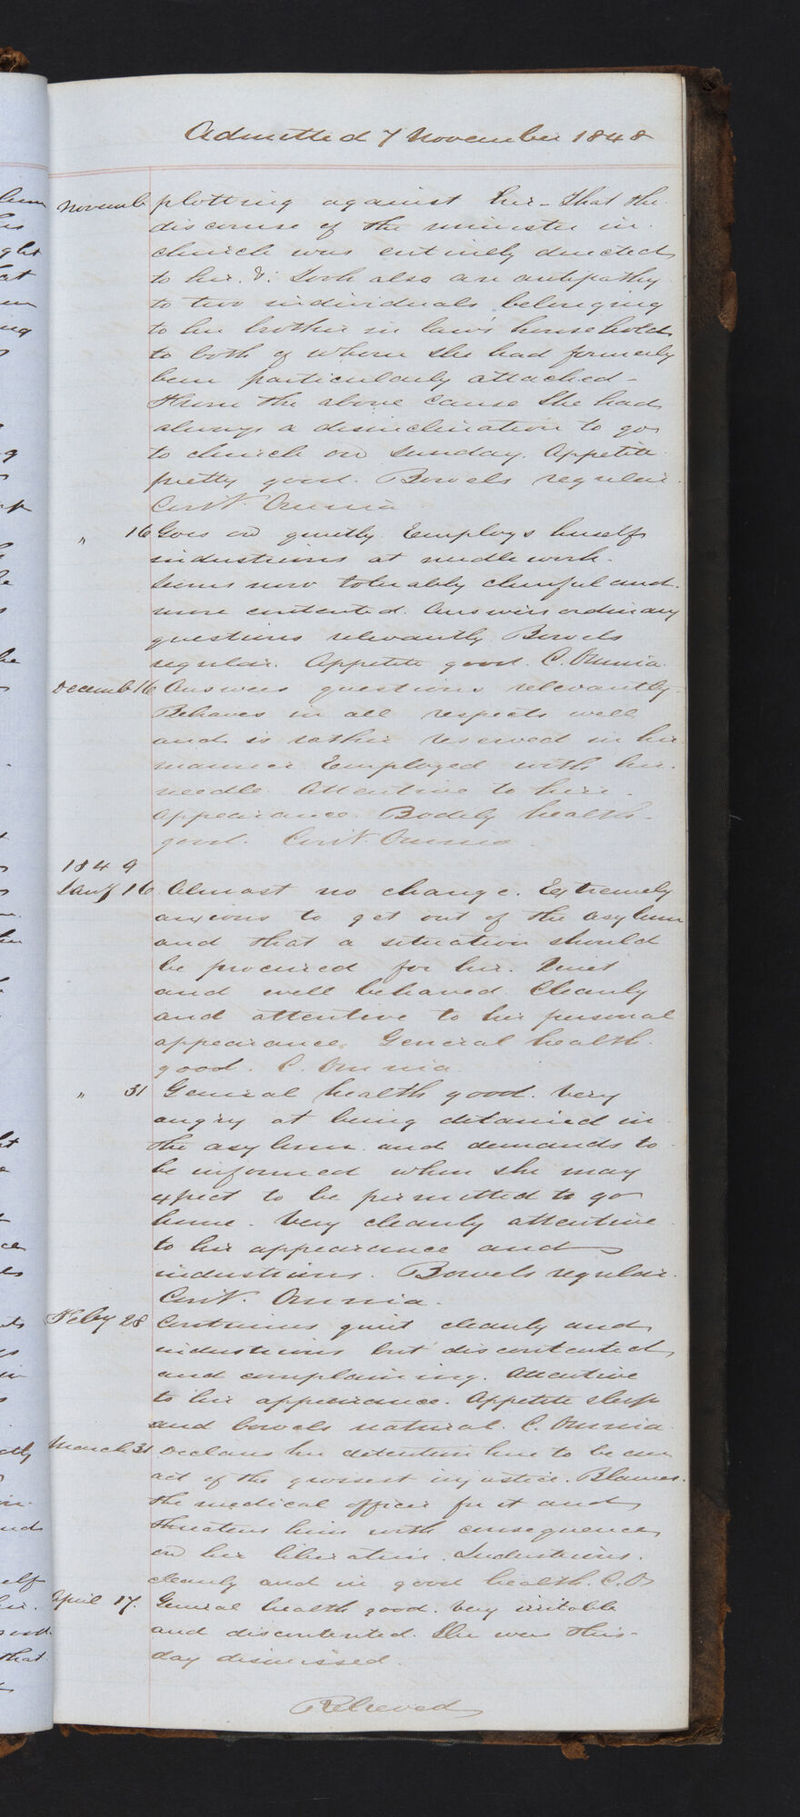 Admitted 7 November 1848
Novemb plotting against her - That the
discourse of the minister in
church was entirely directed
to her. &: Took also an antipathy
to two individuals belonging
to her brother in law's household
to both of whom she had formerly
been particularly attached -
From the above cause she had
always a disinclination to go
to church on Sunday. Appetite
pretty good. Bowels regular.
Cont. Omnia
" 16 Goes on quietly. Employs herself
industrious at needle work.
Seems now tolerably cheerful and
more contented. Answers ordinary
questions relevantly. Bowels
regular. Appetite good. C. Omnia.
Decemb 16 Answers questions relevantly.
Behaves in all respects well
and is rather reserved in her
manner. Employed with her
needle. Attentive to her
appearance. Bodily health
good. Cont. Omnia
1849
Jany 16 Almost no change. Extremely
anxious to get out of the asylum
and that a situation should
be procured for her. Quiet
and well behaved. Cleanly
and attentive to her personal
appearance. General health
good. C. Omnia
" 31 General health good. Very
angry at being detained in
the asylum and demands to
be informed when she may
expect to be permitted to go
home. Very cleanly attentive
to her appearance and
industrious. Bowels regular.
Cont. Omnia.
Feby 28 Continues quiet cleanly and
industrious but discontented
and complaining. Attentive
to her appearance. Appetite sleep
and bowels natural. C. Omnia
March 31 Declares her detention here to be an
act of the grossest injustice. Blames
the medical officer for it and
threatens him with consequences
on her liberation. Industrious.
cleanly and in good health. C. O
April 17. General health good. Very irritable
and discontented. She was this
day dismissed.
Relieved